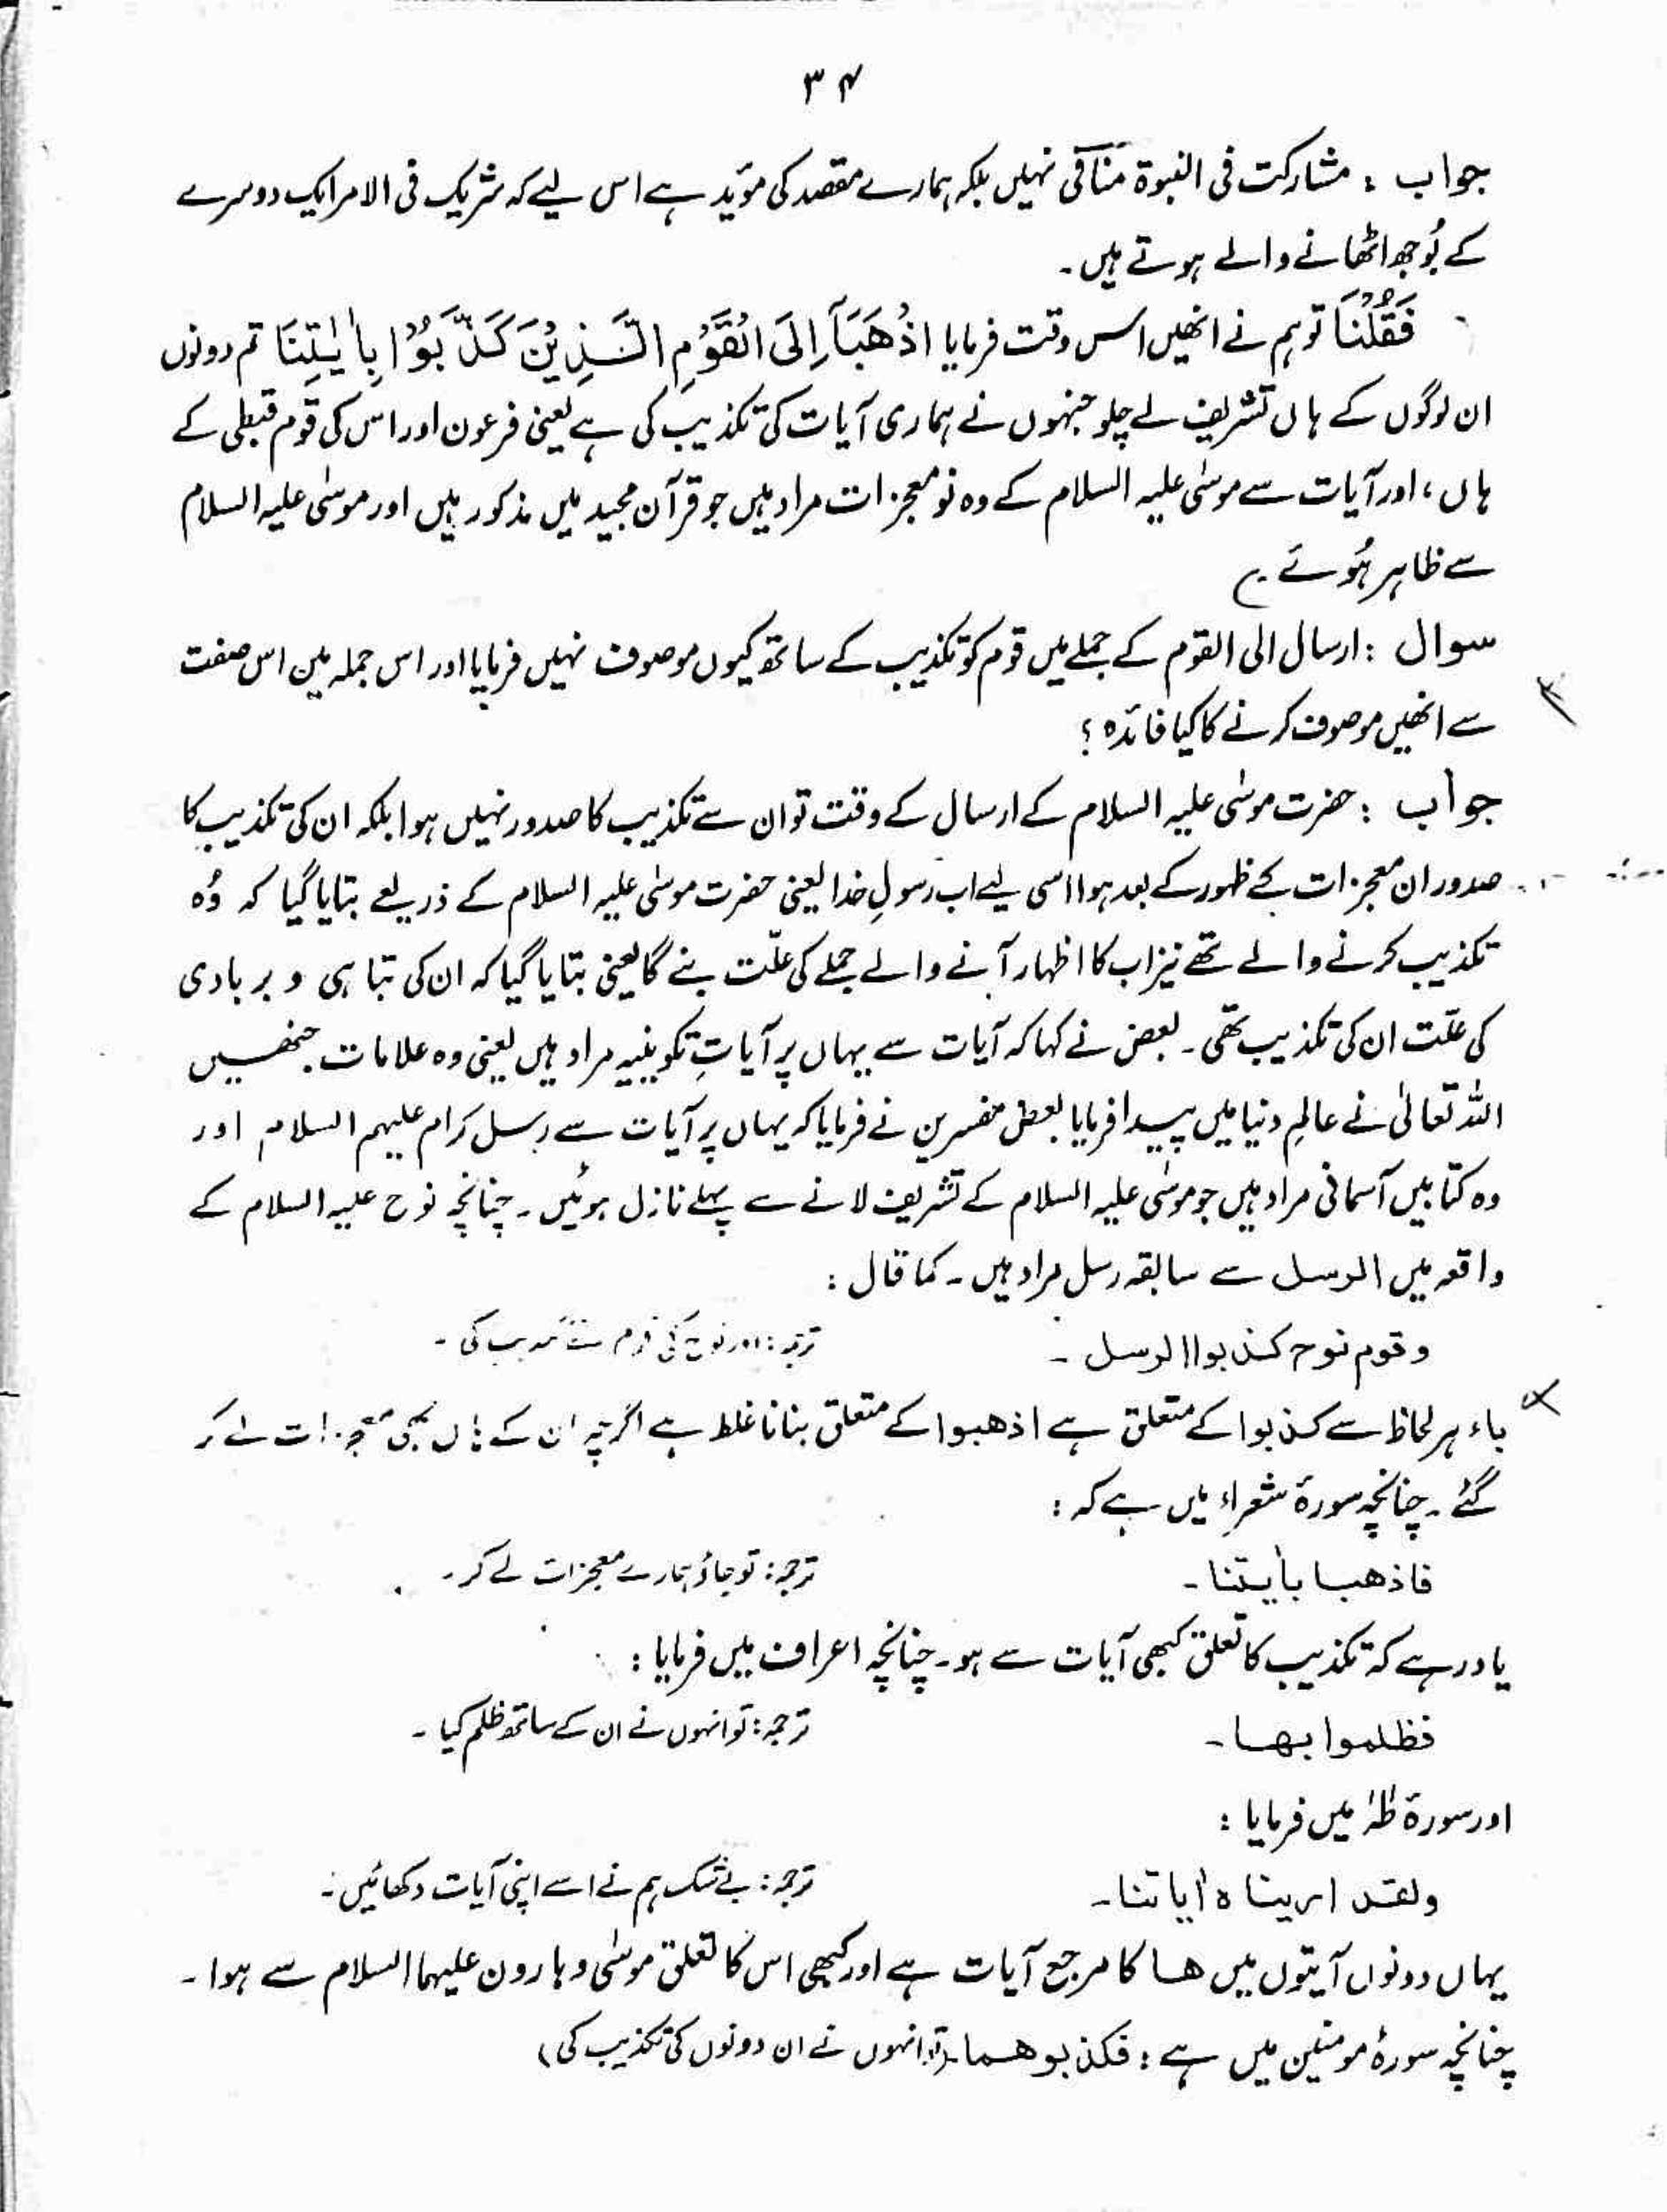 ۳۴
جواب : مشارکت فی النبوۃ منافی نہیں بلکہ ہمارے مقصد کی مؤید ہے اس لیے کہ شریک فی الامر ایک دوسرے
کے بُوجھ اٹھانے والے ہوتے ہیں۔
فَقُلْنَا تو ہم نے انھیں اس وقت فرمایا اذْهَبَآ اِلَى الْقَوْمِ الَّذِيْنَ كَذَّبُوْا بِاٰيٰتِنَا تم دونوں
ان لوگوں کے ہاں تشریف لے چلو جنہوں نے ہماری آیات کی تکذیب کی ہے یعنی فرعون اور اس کی قوم قبطی کے
ہاں ، اور آیات سے موسٰی علیہ السلام کے وہ نو معجزات مراد ہیں جو قرآن مجید میں مذکور ہیں اور موسٰی علیہ السلام
سے ظاہر ہُوئے ۔
سوال : ارسال الی القوم کے جملے میں قوم کو تکذیب کے ساتھ کیوں موصوف نہیں فرمایا اور اس جملہ میں اس صفت
سے انھیں موصوف کرنے کا کیا فائدہ ؟
جواب : حضرت موسٰی علیہ السلام کے ارسال کے وقت تو ان سے تکذیب کا صدور نہیں ہوا بلکہ ان کی تکذیب کا
صدور ان معجزات کے ظہور کے بعد ہوا اسی لیے اب رسولِ خدا یعنی حضرت موسٰی علیہ السلام کے ذریعے بتایا گیا کہ وُہ
تکذیب کرنے والے تھے نیز اب کا اظہار آنے والے جملے کی علّت بنے گا یعنی بتایا گیا کہ ان کی تباہی و بربادی
کی علّت ان کی تکذیب تھی ۔ بعض نے کہا کہ آیات سے یہاں پر آیاتِ تکوینیہ مراد ہیں یعنی وہ علامات جنھیں
اللہ تعالٰی نے عالمِ دنیا میں پیدا فرمایا بعض مفسرین نے فرمایا کہ یہاں پر آیات سے رسل کرام علیہم السلام اور
وہ کتابیں آسمانی مراد ہیں جو موسٰی علیہ السلام کے تشریف لانے سے پہلے نازل ہوئیں ۔ چنانچہ نوح علیہ السلام کے
واقعہ میں الرسل سے سابقہ رسل مراد ہیں ۔ کما قال :
وقوم نوح كذبوا الرسل ۔ ترجمہ : اور نوح کی قوم نے تکذیب کی ۔
باء ہر لحاظ سے کذبوا کے متعلق ہے اذھبوا کے متعلق بنانا غلط ہے اگرچہ ان کے ہاں بھی معجزات لے کر
گئے ۔ چنانچہ سورۂ شعراء میں ہے کہ :
فاذهبا بأيتنا ۔ ترجمہ : تو جاؤ ہمارے معجزات لے کر ۔
یاد رہے کہ تکذیب کا تعلق کبھی آیات سے ہو ۔ چنانچہ اعراف میں فرمایا :
فظلموا بها ۔ ترجمہ : تو انہوں نے ان کے ساتھ ظلم کیا ۔
اور سورۃ طٰہٰ میں فرمایا :
ولقد اريناه اٰياتنا ۔ ترجمہ : بے شک ہم نے اسے اپنی آیات دکھائیں ۔
یہاں دونوں آیتوں میں ھا کا مرجع آیات ہے اور کبھی اس کا تعلق موسٰی و ہارون علیہما السلام سے ہوا ۔
چنانچہ سورۂ مومنین میں ہے : فكذبوهما (تو انہوں نے ان دونوں کی تکذیب کی)